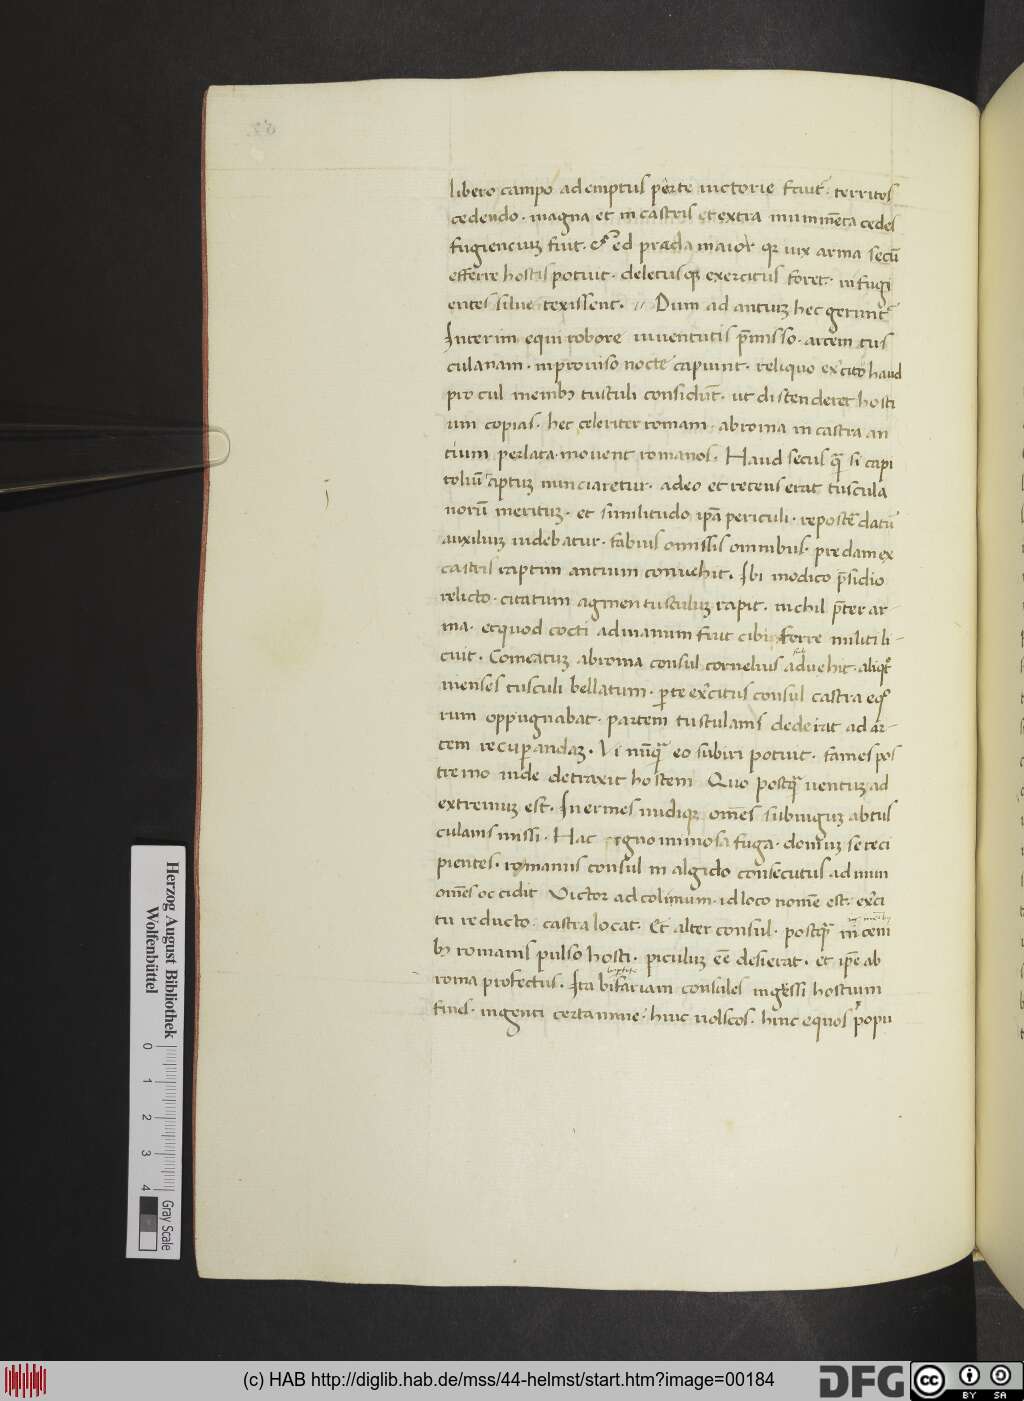 libero campo ad emptus ꝑte uictorie fruit̃. territos
cedendo. magna et in castris et extra munim̃ta cedes
fugiencium fuit. Sed praeda maior qr uix arma secũ
efferre hostis potuit. deletusqꝫ exercitus foret. ni fugi
entes silue texissent. // Dum ad antiuꝫ hec gerunt̃
Interim equi robore iuuentutis p̃misso. arcem tus
culanam. inprouiso nocte capiunt. reliquo ex̃cito haud
procul menibꝫ tusculi considũt. ut distenderet hosti
um copias. hec celeriter romam. ab roma in castra an
tium perlata. mouent romanos. Haud secus qᷓ si capi
toliũ captuꝫ nunciaretur. adeo et recens erat tuscula
norũ merituꝫ. et similitudo ip̃a periculi. reposce datũ
auxiliuꝫ uidebatur. fabius omissis omnibus. predam ex
castris raptim antium conuehit. Ibi modico p̃sidio
relicto. citatum agmen tusculuꝫ rapit. nichil p̃ter ar-
ma. et quod cocti ad manum fuit cibi ferre militi li-
cuit. Comeatuꝫ ab roma consul cornelius aduehit. aliqt̃
menses tusculi bellatum. ꝑte ex̃citus consul castra eq̃
rum oppugnabat. partem tusculanis dederat ad ar-
cem recuꝑandaꝫ. Vi nũqᷓ eo subiri potuit. fames pos
tremo inde detraxit hostem Quo postqᷓ uentuꝫ ad
extremuꝫ est. Inermes nudiqꝫ om̃es sub iuguꝫ ab tus
culanis missi. Hac ignominiosa fuga. domuꝫ se reci
pientes. romanus consul in algido consecutus. ad unum
om̃es occidit Victor ad colimum. id loco nom̃e est. ex̃ci
tu reducto. castra locat. Et alter consul. postqᷓ m̃ceni
bꝫ romanis pulso hosti. piculuꝫ eẽ desierat. et ip̃e ab
roma profectus. Ita bifariam consules ingessi hostium
fines. ingenti certamine. hinc uolscos. hinc equos popu
Herzog August Bibliothek
Wolfenbüttel
0 1 2 3 4
Gray Scale
(c) HAB http://diglib.hab.de/mss/44-helmst/start.htm?image=00184
DFG
cc BY SA